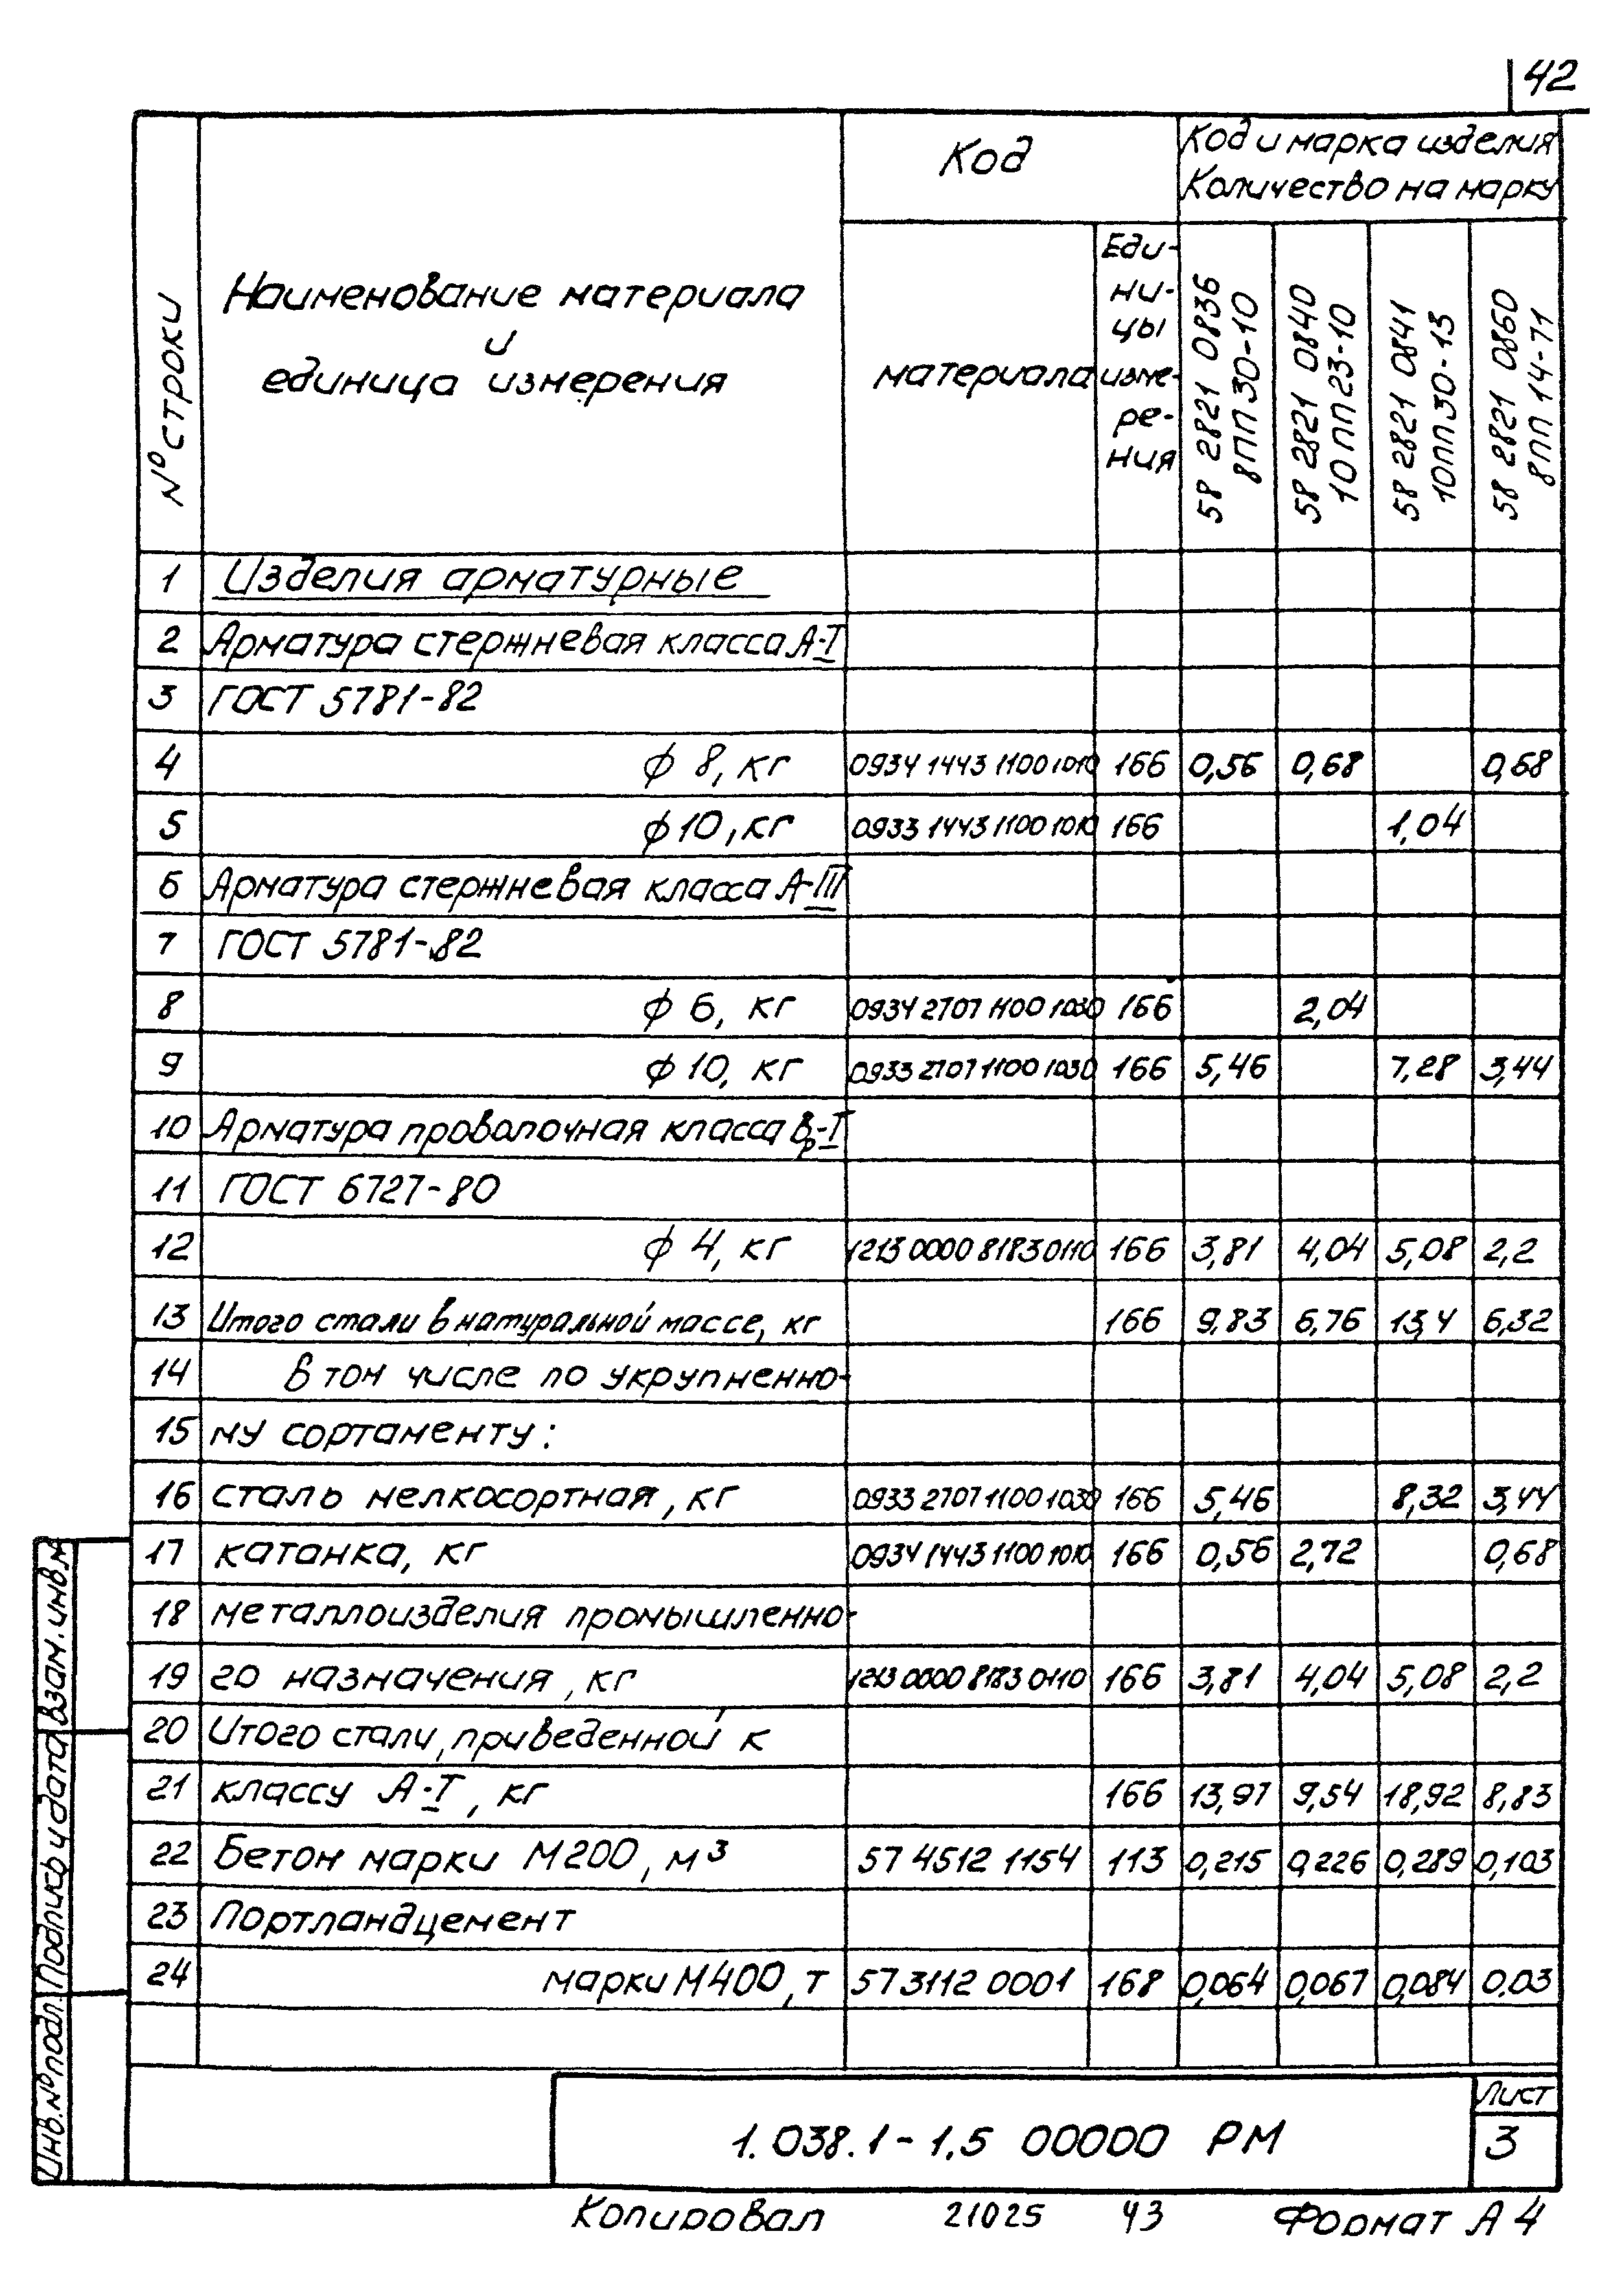 42
№ строки
Наименование материала
и
единица измерения
Код
материала
Еди-
ни-
цы
изме-
ре-
ния
Код и марка изделия
Количество на марку
58 2821 0836
8ПП 30-10
58 2821 0840
10 ПП 23-10
58 2821 0841
10ПП 30-13
58 2821 0860
8ПП 14-71
1 Изделия арматурные
2 Арматура стержневая класса А-I
3 ГОСТ 5781-82
4 ф 8, кг 0934 1443 1100 1010 166 0,56 0,68 0,68
5 ф 10, кг 0933 1443 1100 1010 166 1,04
6 Арматура стержневая класса А-III
7 ГОСТ 5781-82
8 ф 6, кг 0934 2707 1100 1030 166 2,04
9 ф 10, кг 0933 2707 1100 1030 166 5,46 7,28 3,44
10 Арматура проволочная класса Вр-I
11 ГОСТ 6727-80
12 ф 4, кг 1213 0000 8183 0110 166 3,81 4,04 5,08 2,2
13 Итого стали в натуральной массе, кг 166 9,83 6,76 13,4 6,32
14 в том числе по укрупненно-
15 му сортаменту:
16 сталь мелкосортная, кг 0933 2707 1100 1030 166 5,46 8,32 3,44
17 катанка, кг 0934 1443 1100 1010 166 0,56 2,72 0,68
18 металлоизделия промышленно-
19 го назначения, кг 1213 0000 8183 0110 166 3,81 4,04 5,08 2,2
20 Итого стали, приведенной к
21 классу А-I, кг 166 13,97 9,54 18,92 8,83
22 Бетон марки М200, м³ 57 4512 1154 113 0,215 0,226 0,289 0,103
23 Портландцемент
24 марки М400, т 57 3112 0001 168 0,064 0,067 0,084 0.03
Взам. инв. №
Подпись и дата
Инв. № подл.
1.038.1-1.5 00000 РМ
Лист
3
Копировал 21025 43 Формат А4